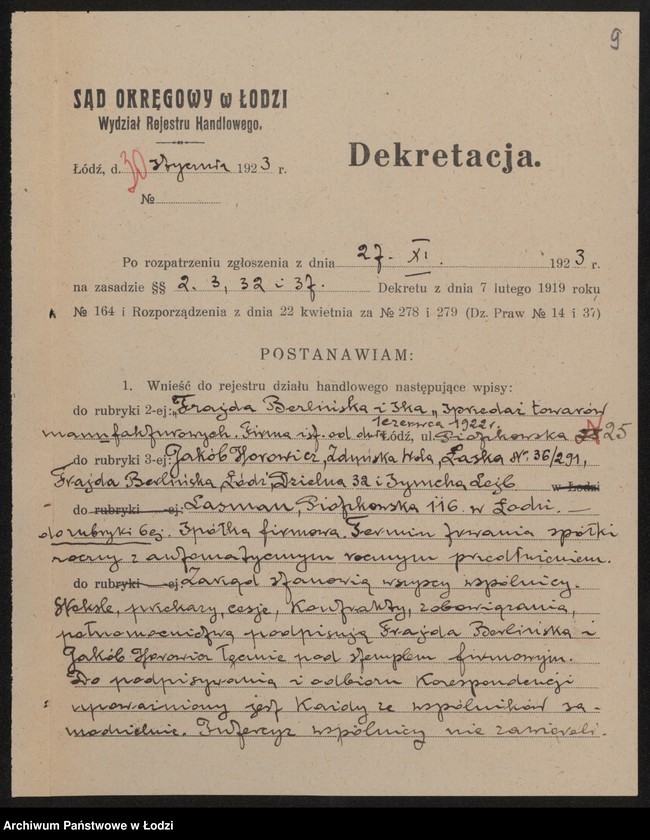 9
SĄD OKRĘGOWY w ŁODZI
Wydział Rejestru Handlowego.
Dekretacja.
Łódź, d. 30 stycznia 1923 r.
№
Po rozpatrzeniu zgłoszenia z dnia 27. XI. 1923 r.
na zasadzie §§ 2. 3, 32 i 37. Dekretu z dnia 7 lutego 1919 roku
№ 164 i Rozporządzenia z dnia 22 kwietnia za № 278 i 279 (Dz. Praw № 14 i 37)
POSTANAWIAM:
1. Wnieść do rejestru działu handlowego następujące wpisy:
do rubryki 2-ej: „Frajda Berlińska i Ska„ sprzedaż towarów
czerwca 1922 r.
manufakturowych. Firma istn. od dn. Łódź, ul. Piotrkowska 25
do rubryki 3-ej: Jakób Horowicz, Zduńska Wola, Łaska Nr. 36/291,
Frajda Berlińska, Łódź, Dzielna 32 i Symcha Lejb w Łodzi
do rubryki -ej: Lasman, Piotrkowska 116. w Łodzi. —
do rubryki 6ej. Spółka firmowa. Termin trwania spółki
roczny z automatycznym rocznym przedłużeniem.
do rubryki -ej: Zarząd stanowią wszyscy wspólnicy.
Weksle, przekazy, cesje, Kontrakty, zobowiązania,
pełnomocnictwa podpisują Frajda Berlińska i
Jakób Horowicz łącznie pod stemplem firmowym.
Do podpisywania i odbioru Korespondencji
upoważniony jest Każdy ze wspólników sa-
modzielnie. Intercyz wspólnicy nie zawierali.
Archiwum Państwowe w Łodzi